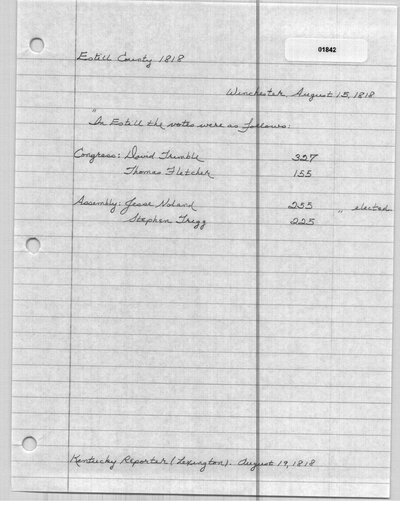 01842
Estill County 1818
Winchester, August 15, 1818
"In Estill the votes were as follows:
Congress: David Trimble 327
Thomas Fletcher 155
Assembly: Jesse Noland 255 " elected
Stephen Trigg 225
Kentucky Reporter (Lexington). August 19, 1818